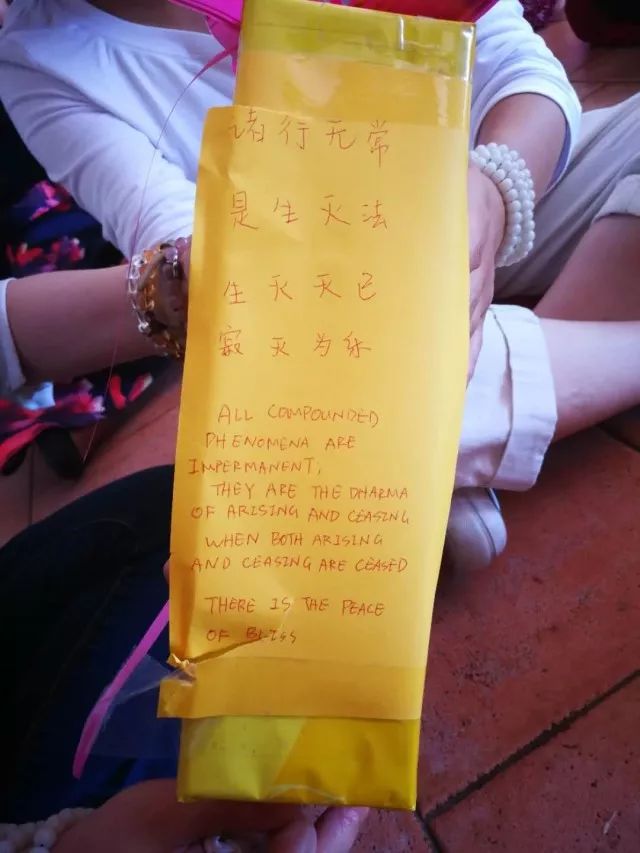 诸行无常
是生灭法
生灭灭已
寂灭为乐
ALL COMPOUNDED
PHENOMENA ARE
IMPERMANENT,
THEY ARE THE DHARMA
OF ARISING AND CEASING
WHEN BOTH ARISING
AND CEASING ARE CEASED
THERE IS THE PEACE
OF BLISS